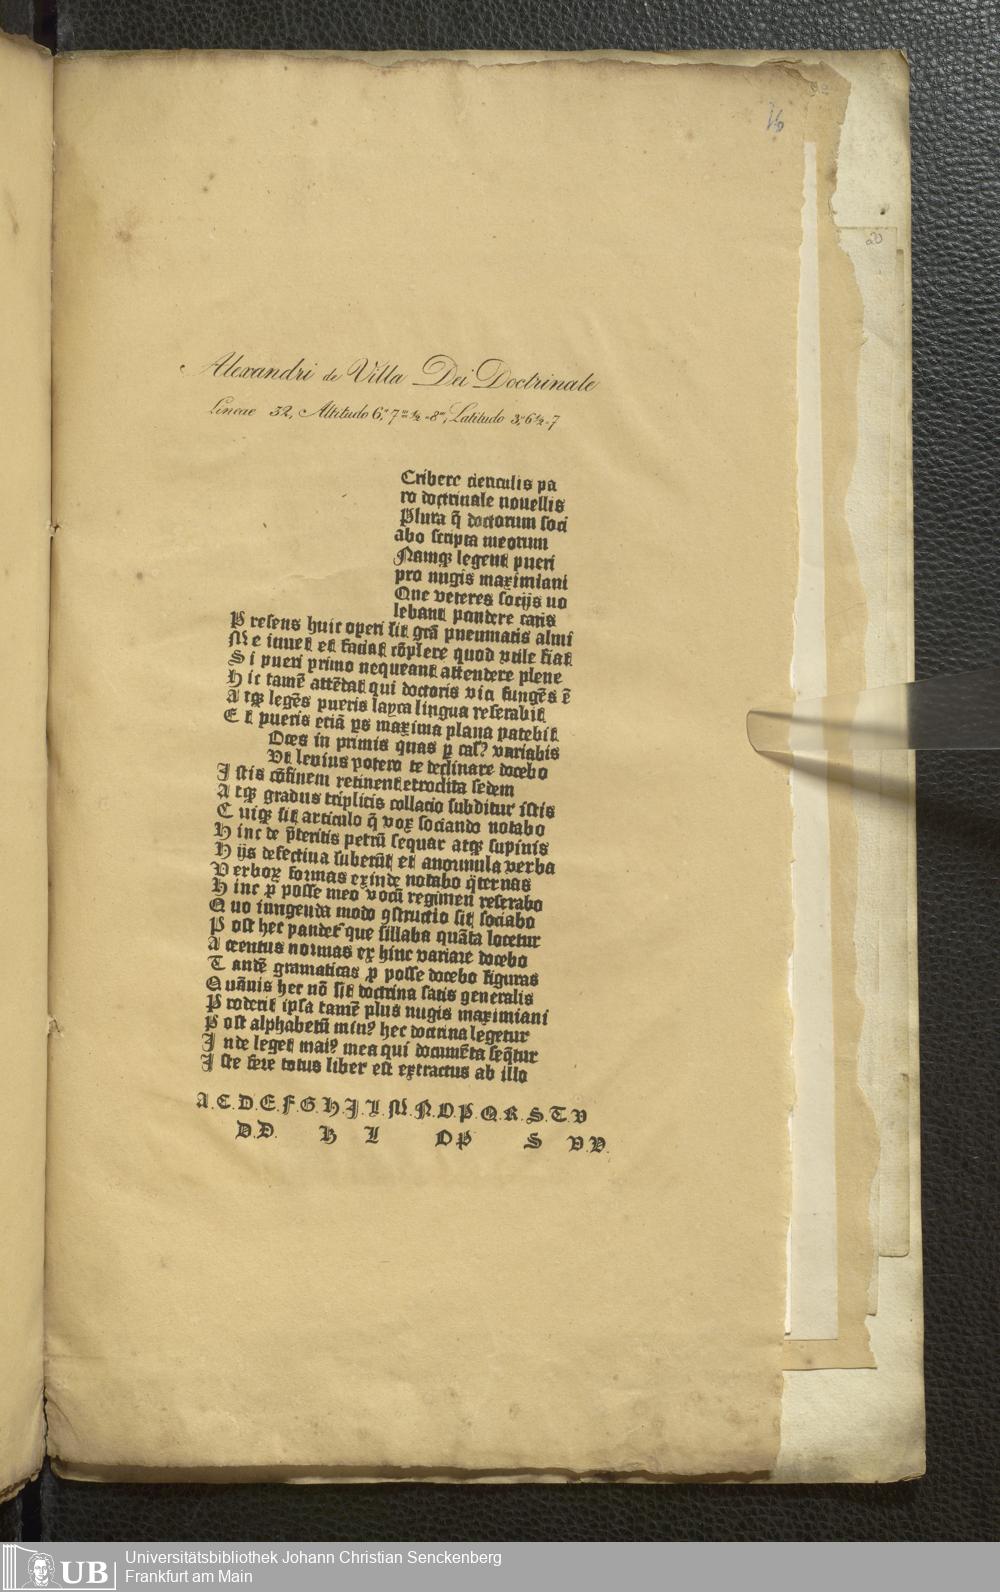 16
20
Alexandri de Villa Dei Doctrinale
Lineae 32, Altitudo 6", 7"' ½ - 8"', Latitudo 3", 6 ½ - 7
Cribere clericulis pa
ro doctrinale nouellis
Plura q̄ doctorum soci
abo scripta meorum
Namqꝫ legent pueri
pro nugis maximiani
Que veteres socijs no
lebant pandere caris
P resens huic operi sit grā pneumatis almi
M e iuuet et faciat cōplere quod vtile fiat
S i pueri primo nequeant attendere plene
H ic tamē attēdat qui doctoris vice fungēs ē
A tqꝫ legēs pueris layca lingua reserabit
E t pueris eciā ps maxima plana patebit
Oces in primis quas ꝑ casꝰ variabis
Vt leuius potero te declinare docebo
I stis cōfinem retinent etroclita sedem
A tqꝫ gradus triplicis collacio subditur istis
C uiqꝫ sit articulo q̄ vox sociando notabo
H inc de p̄teritis petrū sequar atqꝫ supinis
H ijs defectiua suberūt et anormula verba
V erboꝝ formas exinde notabo q̄ternas
H inc ꝓ posse meo vocū regimen reserabo
Q uo iungenda modo ꝯstructio sit sociabo
P ost hec pandet᷑ que sillaba quāta locetur
A ccentus normas ex hinc variare docebo
T andē gramaticas ꝓ posse docebo figuras
Q uāuis hec nō sit doctrina satis generalis
P roderit ipsa tamē plus nugis maximiani
P ost alphabetū minꝰ hec doctrina legetur
I nde leget maiꝰ mea qui documēta seq̄tur
I ste fere totus liber est extractus ab illo
A.C.D.E.F.G.H.I.L.M.N.O.P.Q.R.S.T.V
D.D. H L O P S V.V.
UB
Universitätsbibliothek Johann Christian Senckenberg
Frankfurt am Main